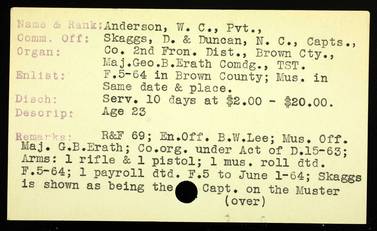 Name & Rank: Anderson, W. C., Pvt.,
Comm. Off: Skaggs, D. & Duncan, N. C., Capts.,
Organ: Co. 2nd Fron. Dist., Brown Cty.,
Maj.Geo.B.Erath Comdg., TST.
Enlist: F.5-64 in Brown County; Mus. in
Same date & place.
Disch: Serv. 10 days at $2.00 - $20.00.
Descrip: Age 23
Remarks: R&F 69; En.Off. B.W.Lee; Mus. Off.
Maj. G.B.Erath; Co.org. under Act of D.15-63;
Arms: 1 rifle & 1 pistol; 1 mus. roll dtd.
F.5-64; 1 payroll dtd. F.5 to June 1-64; Skaggs
is shown as being the Capt. on the Muster
(over)